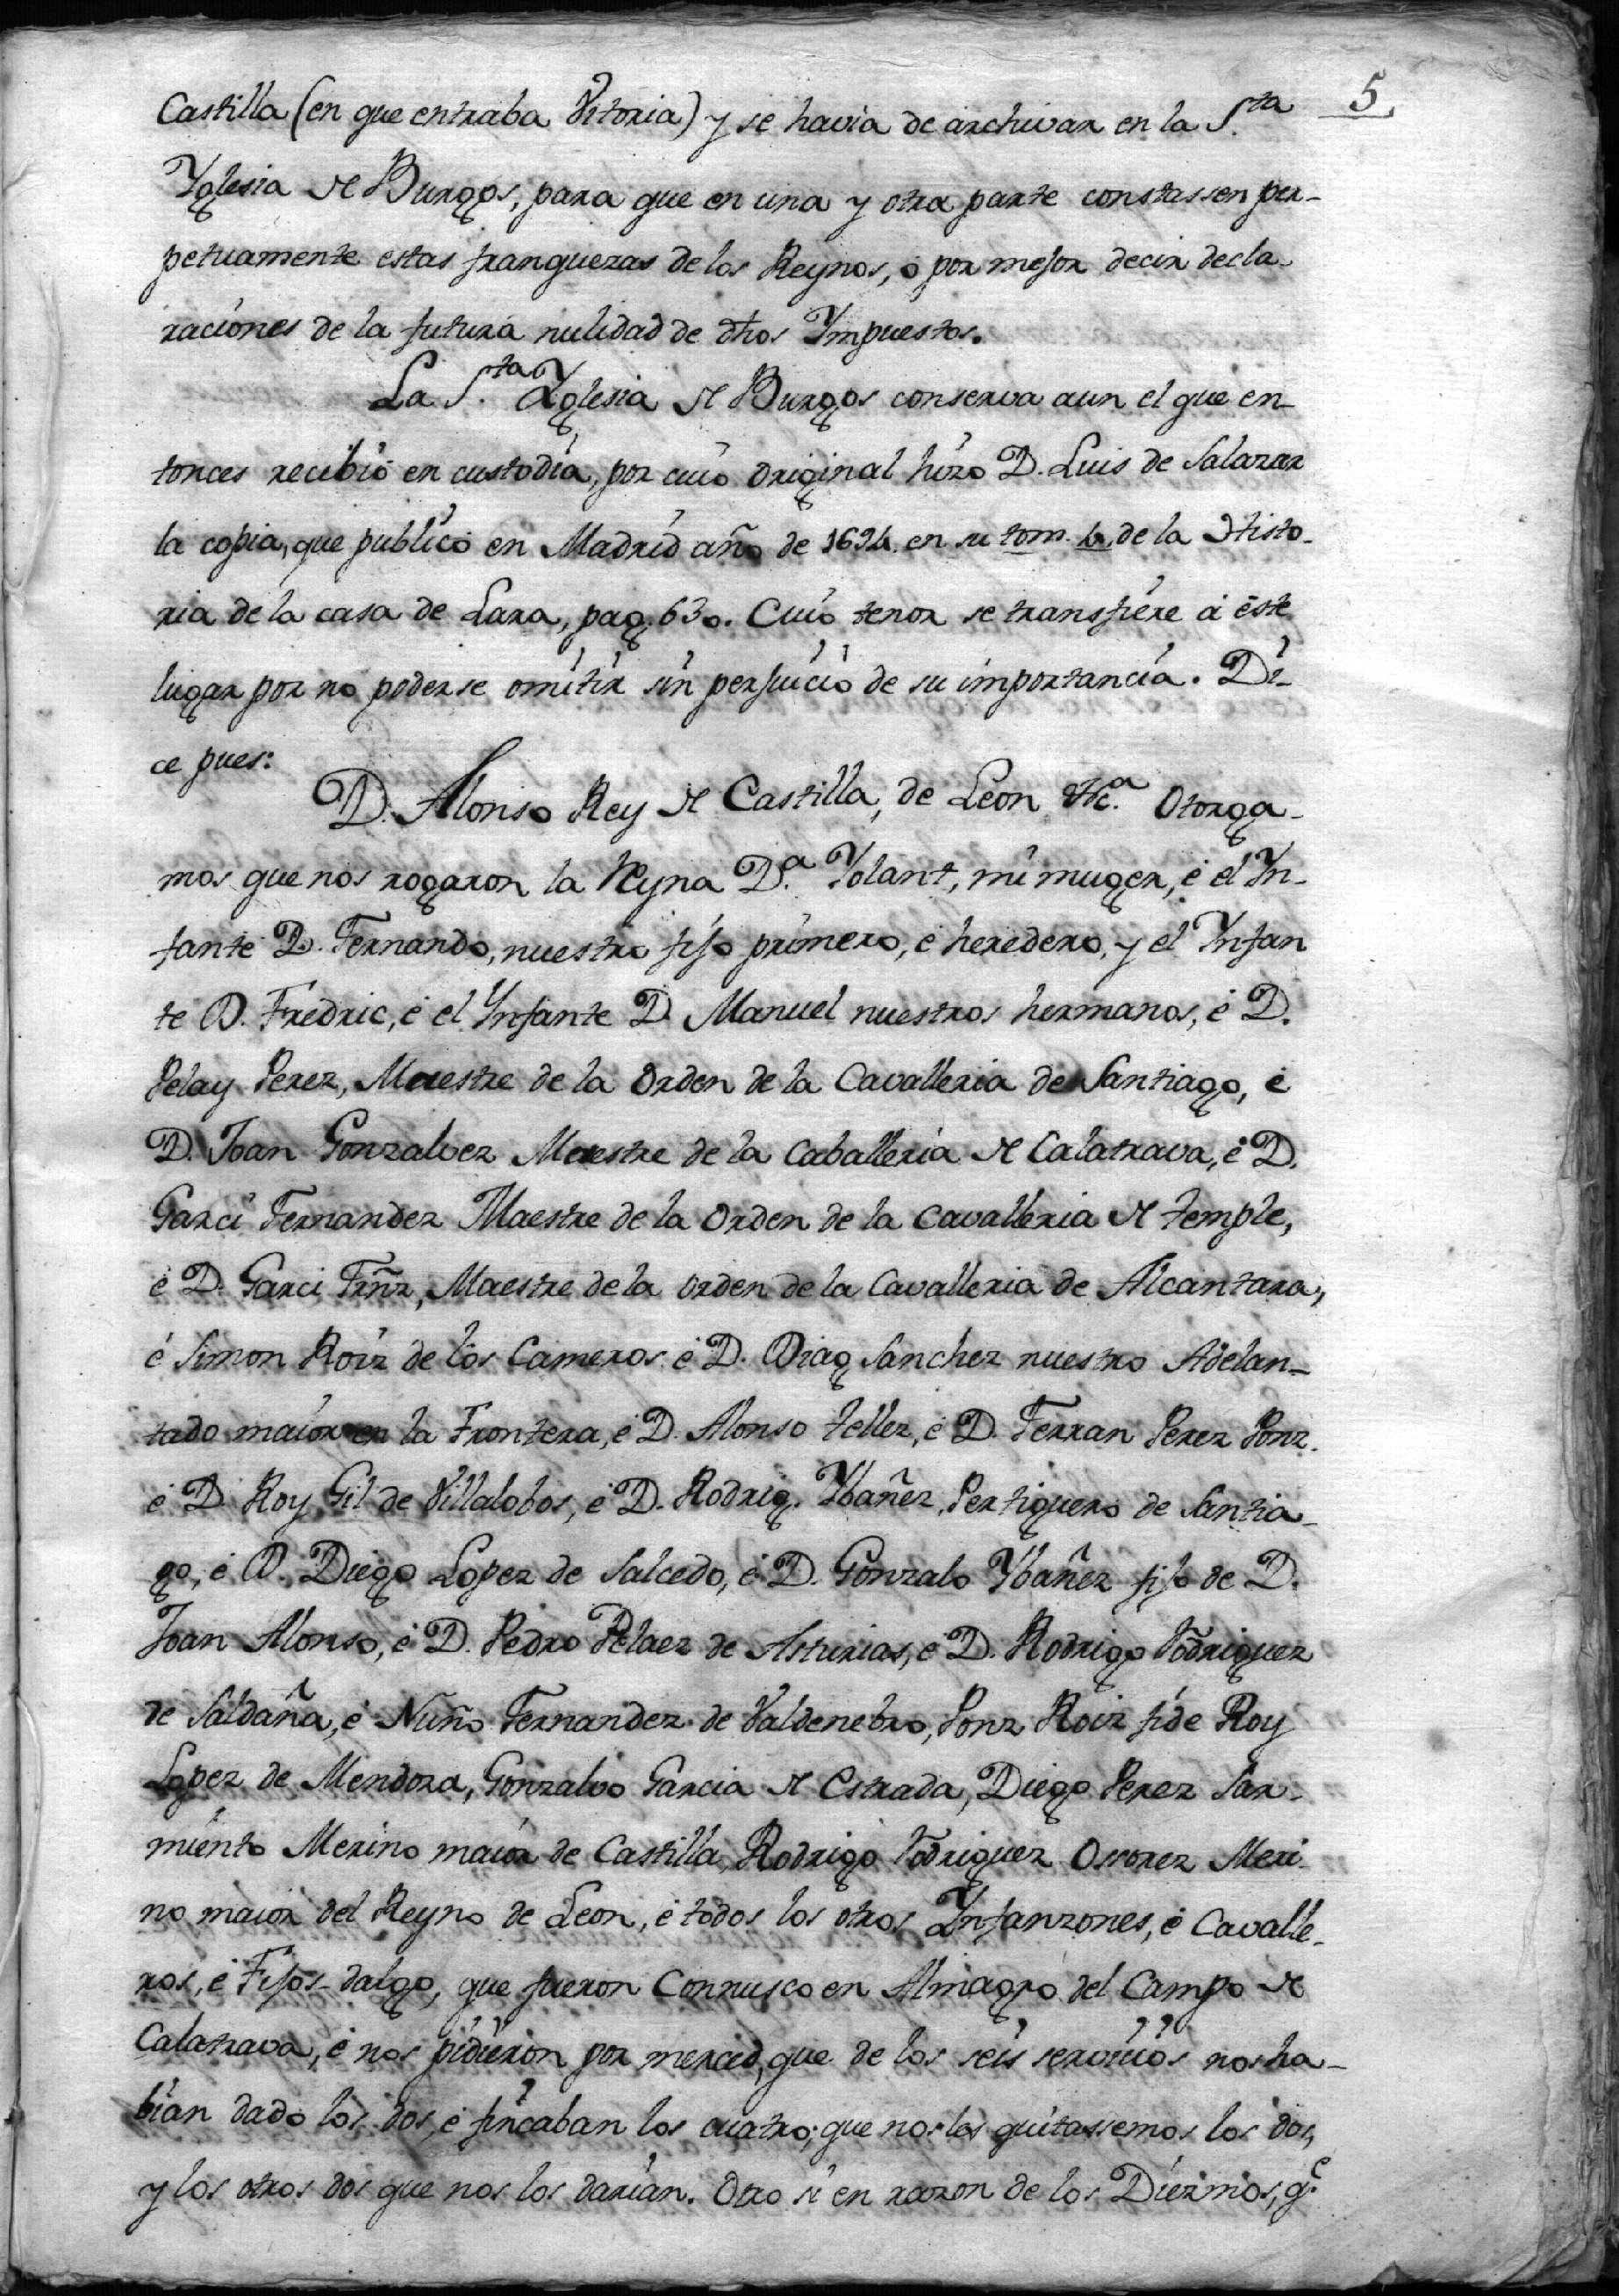 5
Castilla (en que entraba Vitoria) y se havia de archivar en la S.ta
Yglesia de Burgos, para que en una y otra parte constassen per-
petuamente estas franquezas de los Reynos, o por mejor decir decla-
raciones de la futura nulidad de dhos Ympuestos.
La S.ta Yglesia de Burgos conserva aun el que en-
tonces recibió en custodia, por cuio original hizo D. Luis de Salazar
la copia, que publicó en Madrid año de 1694. en su tom. 4. de la Histo-
ria de la casa de Lara, pag. 630. Cuio tenor se transfiere á éste
lugar por no poderse omitir sin perjuicio de su importancia. Di-
ce pues:
D. Alonso Rey de Castilla, de Leon &c.a Otorga-
mos que nos rogaron la Reyna D.a Yolant, mi muger, é el Yn-
fante D. Fernando, nuestro fijo primero, é heredero, y el Ynfan
te D. Fredric, é el Ynfante D. Manuel nuestros hermanos, é D.
Pelay Perez, Maestre de la Orden de la Cavalleria de Santiago, é
D. Joan Gonzalvez Maestre de la Caballeria de Calatrava, é D.
Garci Fernandez Maestre de la Orden de la Cavalleria de Temple,
é D. Garci Frñz, Maestre de la orden de la Cavalleria de Alcantara,
é Simon Roiz de los Cameros é D. Diag Sanchez nuestro Adelan-
tado maior en la Frontera, é D. Alonso Tellez, é D. Ferran Perez Ponz.
é D. Roy Gil de Villalobos, é D. Rodrig. Ybañez, Pertiguero de Santia-
go, é D. Diego Lopez de Salcedo, é D. Gonzalo Ybañez fijo de D.
Joan Alonso, é D. Pedro Pelaez de Asturias, é D. Rodrigo Rodriguez
de Saldaña, é Nuño Fernandez de Valdenebro, Ponz Roiz fi de Roy
Lopez de Mendoza, Gonzalvo Garcia de Estrada, Diego Perez Sar-
miento Merino maior de Castilla, Rodrigo Rodriguez Osorez Meri-
no maior del Reyno de Leon, é todos los otros Ynfanzones, é Cavalle-
ros, é Fijos-dalgo, que fueron Connusco en Almagro del Campo de
Calatrava, é nos pidieron por merced, que de los seis servicios nos ha-
bian dado los dos, é fincaban los cuatro; que nos les quitassemos los dos,
y los otros dos que nos los darian. Otro si en razon de los Diezmos, q.e